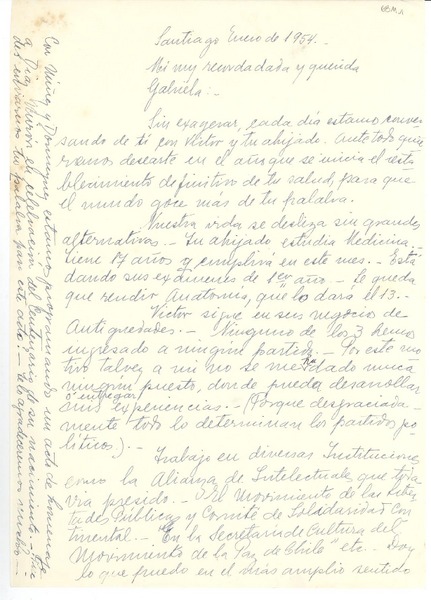 Santiago Enero de 1954.-
Mi muy recordada y querida
Gabriela:-
Sin exagerar, cada día estamos conver
sando de ti con Victor y tu ahijado. Ante todo que
remos desearte en el año que se inicia el resta
blecimiento definitivo de tu salud, para que
el mundo goce más de tu palabra.
Nuestra vida se desliza sin grandes
alternativas.- Tu ahijado estudia Medicina.-
Tiene 17 años y cumplirá en este mes.- Está
dando sus exámenes de 1er año.- Le queda
que rendir Anatomía, que lo dará el 13.-
Victor sigue en sus negocios de
Antiguedades.- Ninguno de los 3 hemos
ingresado a ningún partido.- Por este mo
tivo talvez a mi no se me ha dado nunca
ningún puesto, donde pueda desarrollar
o entregar
mis experiencias.- (Porque desgraciada
mente todo lo determinan los partidos po
líticos).-
Trabajo en diversas Instituciones
como la Alianza de Intelectuales, que toda
vía presido.- el Movimiento de las
Públicas y Comité de Solidaridad Con
tinental.- En la Secretaría de Cultura del
"Movimiento de la Paz de Chile" etc.- Doy
lo que puedo en el más amplio sentido
Con Núñez y Domínguez estamos programando un acto de homenaje
a Díaz Mirón en celebración del Centenario de su nacimiento.-
des enviarnos tu palabra para este acto.- Te lo agradeceremos